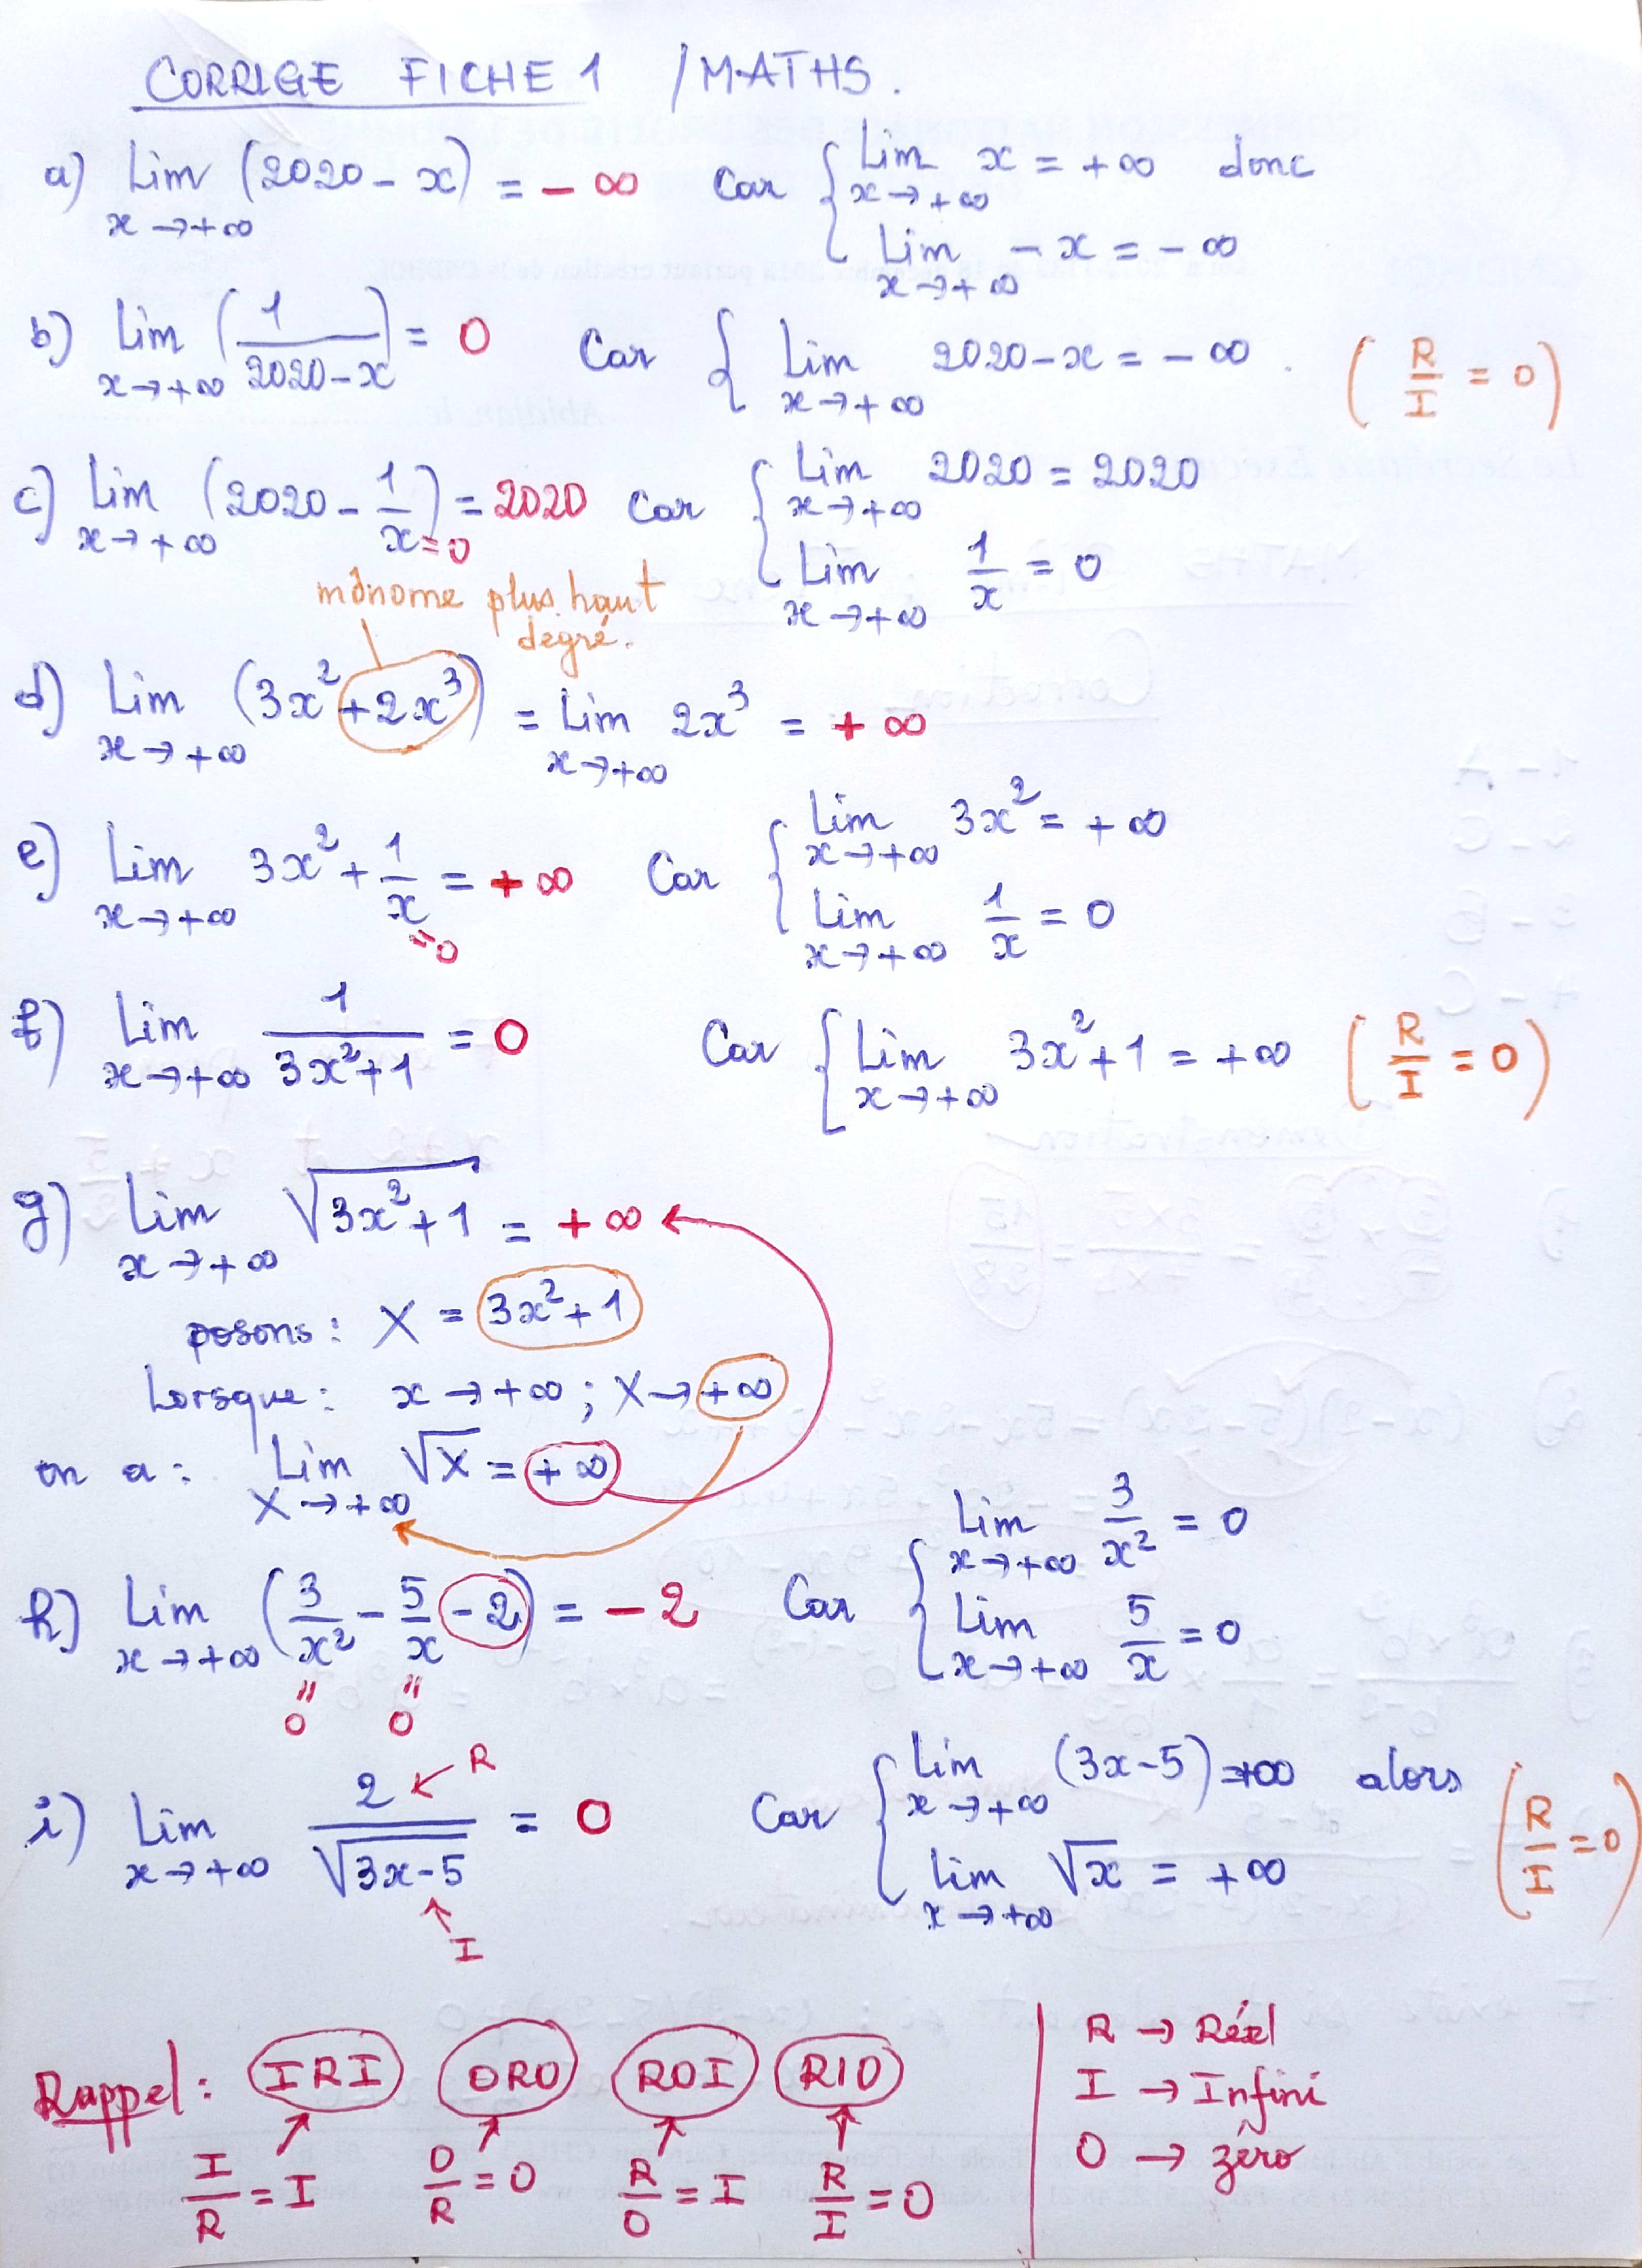 CORRIGE FICHE 1 / MATHS.
a) Lim (2020 - x) = - ∞ Car { Lim x = + ∞ donc
x → + ∞ x → + ∞
Lim - x = - ∞
x → + ∞
b) Lim ( 1 / 2020 - x ) = 0 Car { Lim 2020 - x = - ∞ . ( R / I = 0 )
x → + ∞ x → + ∞
c) Lim ( 2020 - 1 / x ) = 2020 Car { Lim 2020 = 2020
x → + ∞ = 0 x → + ∞
Lim 1 / x = 0
x → + ∞
mônome plus haut
degré.
d) Lim (3x² + 2x³) = Lim 2x³ = + ∞
x → + ∞ x → + ∞
e) Lim 3x² + 1 / x = + ∞ Car { Lim 3x² = + ∞
x → + ∞ = 0 x → + ∞
Lim 1 / x = 0
x → + ∞
f) Lim 1 / 3x² + 1 = 0 Car { Lim 3x² + 1 = + ∞ ( R / I = 0 )
x → + ∞ x → + ∞
g) Lim √3x² + 1 = + ∞
x → + ∞
posons : X = 3x² + 1
Lorsque : x → + ∞ ; X → + ∞
on a : Lim √X = + ∞
X → + ∞
h) Lim ( 3 / x² - 5 / x - 2 ) = - 2 Car { Lim 3 / x² = 0
x → + ∞ x → + ∞
Lim 5 / x = 0
x → + ∞
= 0 = 0
i) Lim 2 / √3x - 5 = 0 Car { Lim (3x - 5) = +∞ alors ( R / I = 0 )
x → + ∞ x → + ∞
← R
Lim √x = + ∞
x → +∞
↑ I
Rappel : IRI ORO ROI RIO
I / R = I 0 / R = 0 R / 0 = I R / I = 0
R → Réel
I → Infini
O → zéro